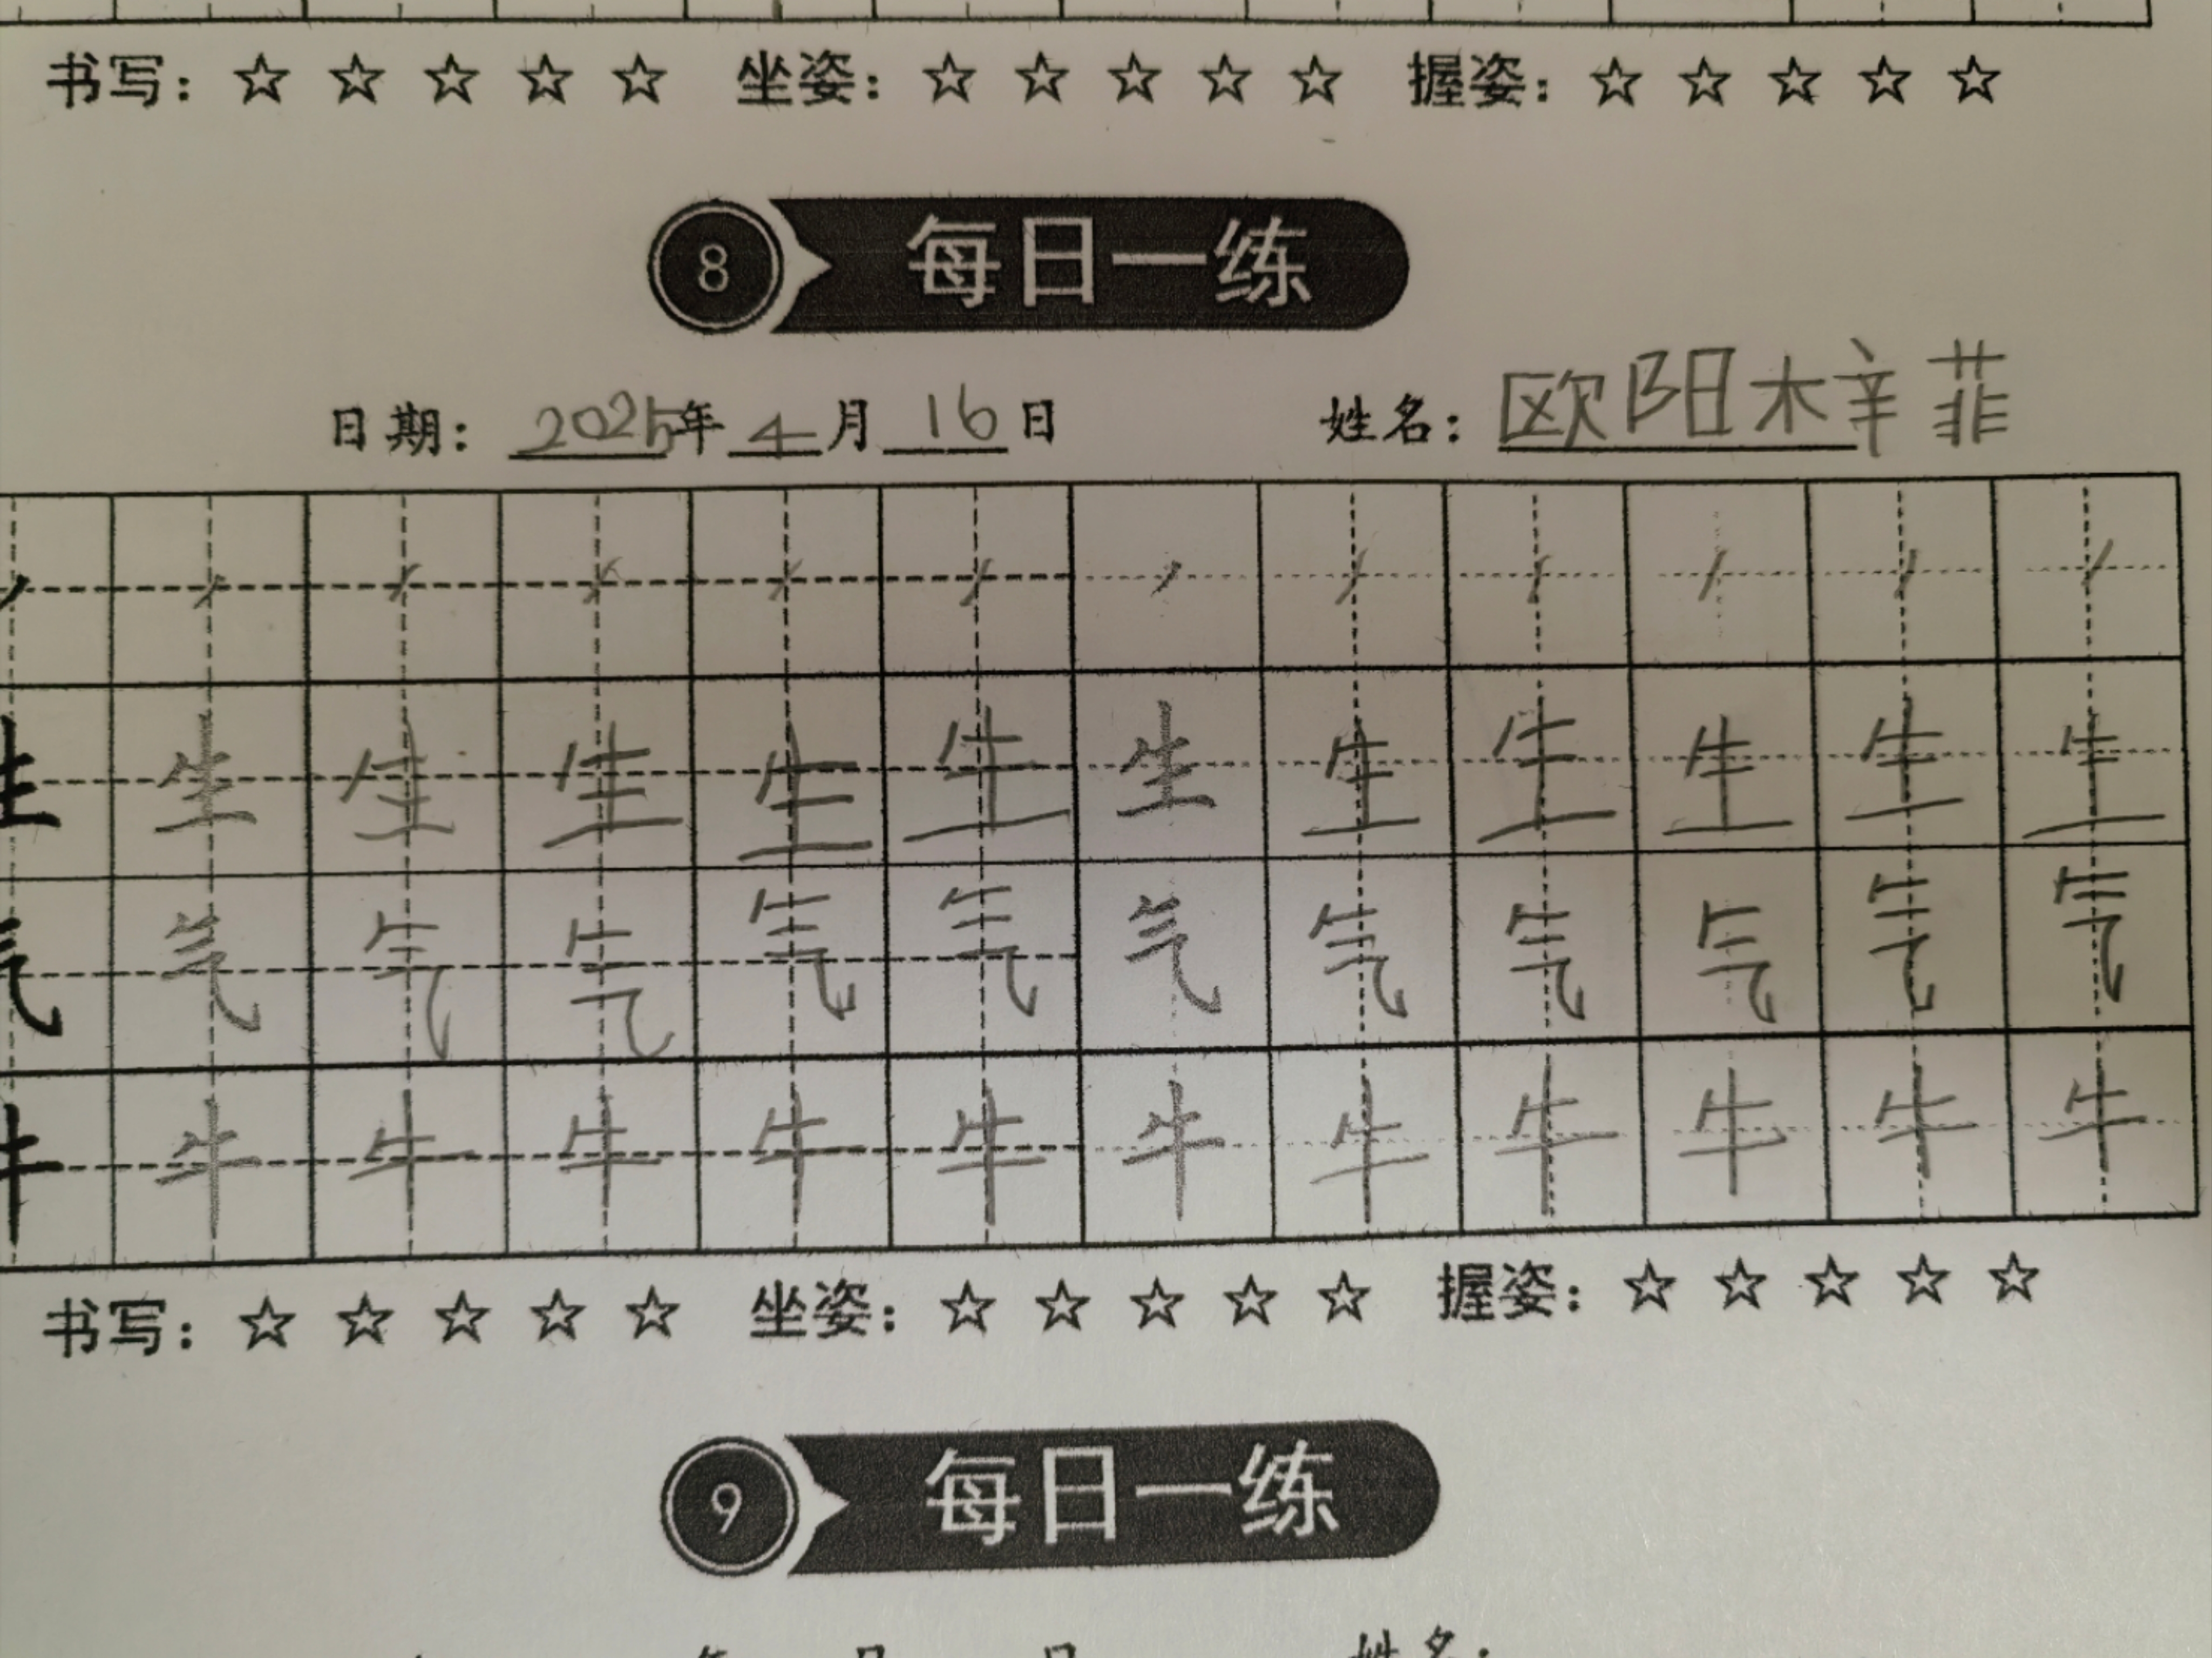 书写：☆ ☆ ☆ ☆ ☆ 坐姿：☆ ☆ ☆ ☆ ☆ 握姿：☆ ☆ ☆ ☆ ☆
8 每日一练
日期：2025年 4月 16日 姓名：欧阳梓菲
丿 丿 丿 丿 丿 丿 丿 丿 丿 丿 丿 丿
生 生 生 生 生 生 生 生 生 生 生 生
气 气 气 气 气 气 气 气 气 气 气 气
牛 牛 牛 牛 牛 牛 牛 牛 牛 牛 牛 牛
书写：☆ ☆ ☆ ☆ ☆ 坐姿：☆ ☆ ☆ ☆ ☆ 握姿：☆ ☆ ☆ ☆ ☆
9 每日一练
年 月 日 姓名：